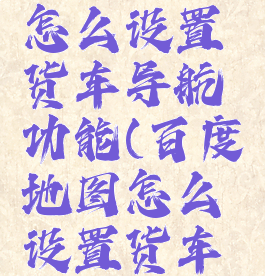 怎么设置
货车导航
功能(百度
地图怎么
设置货车